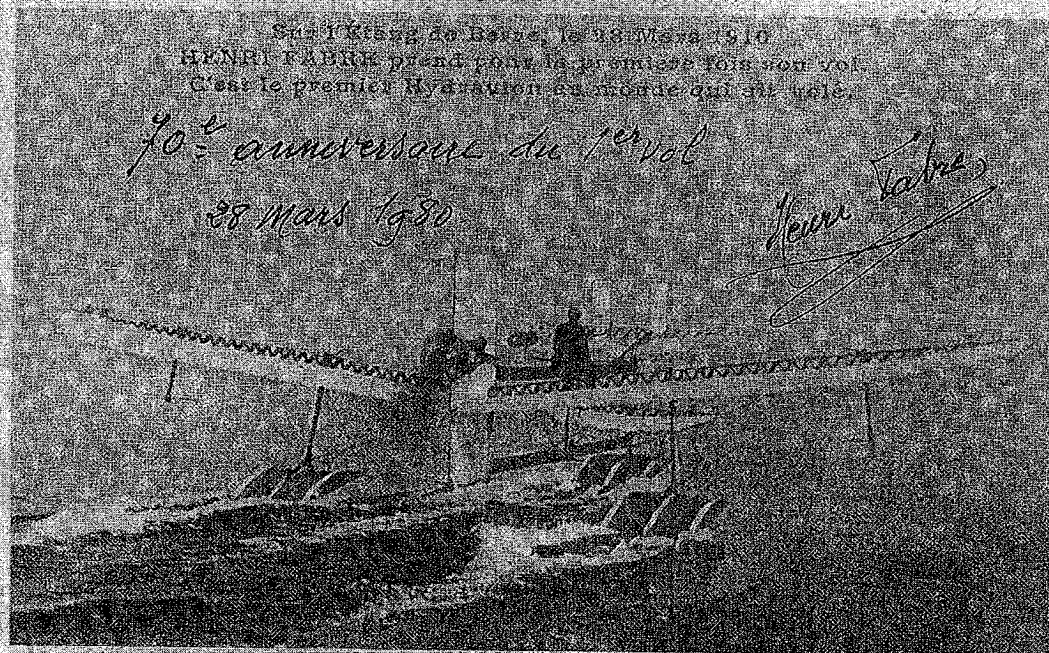 Sur l'Etang de Berre, le 28 Mars 1910
HENRI FABRE prend pour la première fois son vol.
C'est le premier Hydravion au monde qui ait volé.
70e anniversaire du 1er vol
28 Mars 1980
Henri Fabre